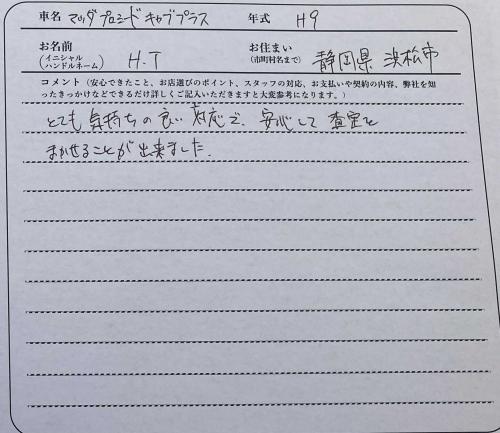 車名 マツダプロシードキャブプラス 年式 H9
お名前 (イニシャル ハンドルネーム) H.T お住まい (市町村名まで) 静岡県 浜松市
コメント(安心できたこと、お店選びのポイント、スタッフの対応、お支払いや契約の内容、弊社を知
ったきっかけなどできるだけ詳しくご記入いただきますと大変参考になります。)
とても気持ちの良い対応で、安心して査定を
まかせることが出来ました。